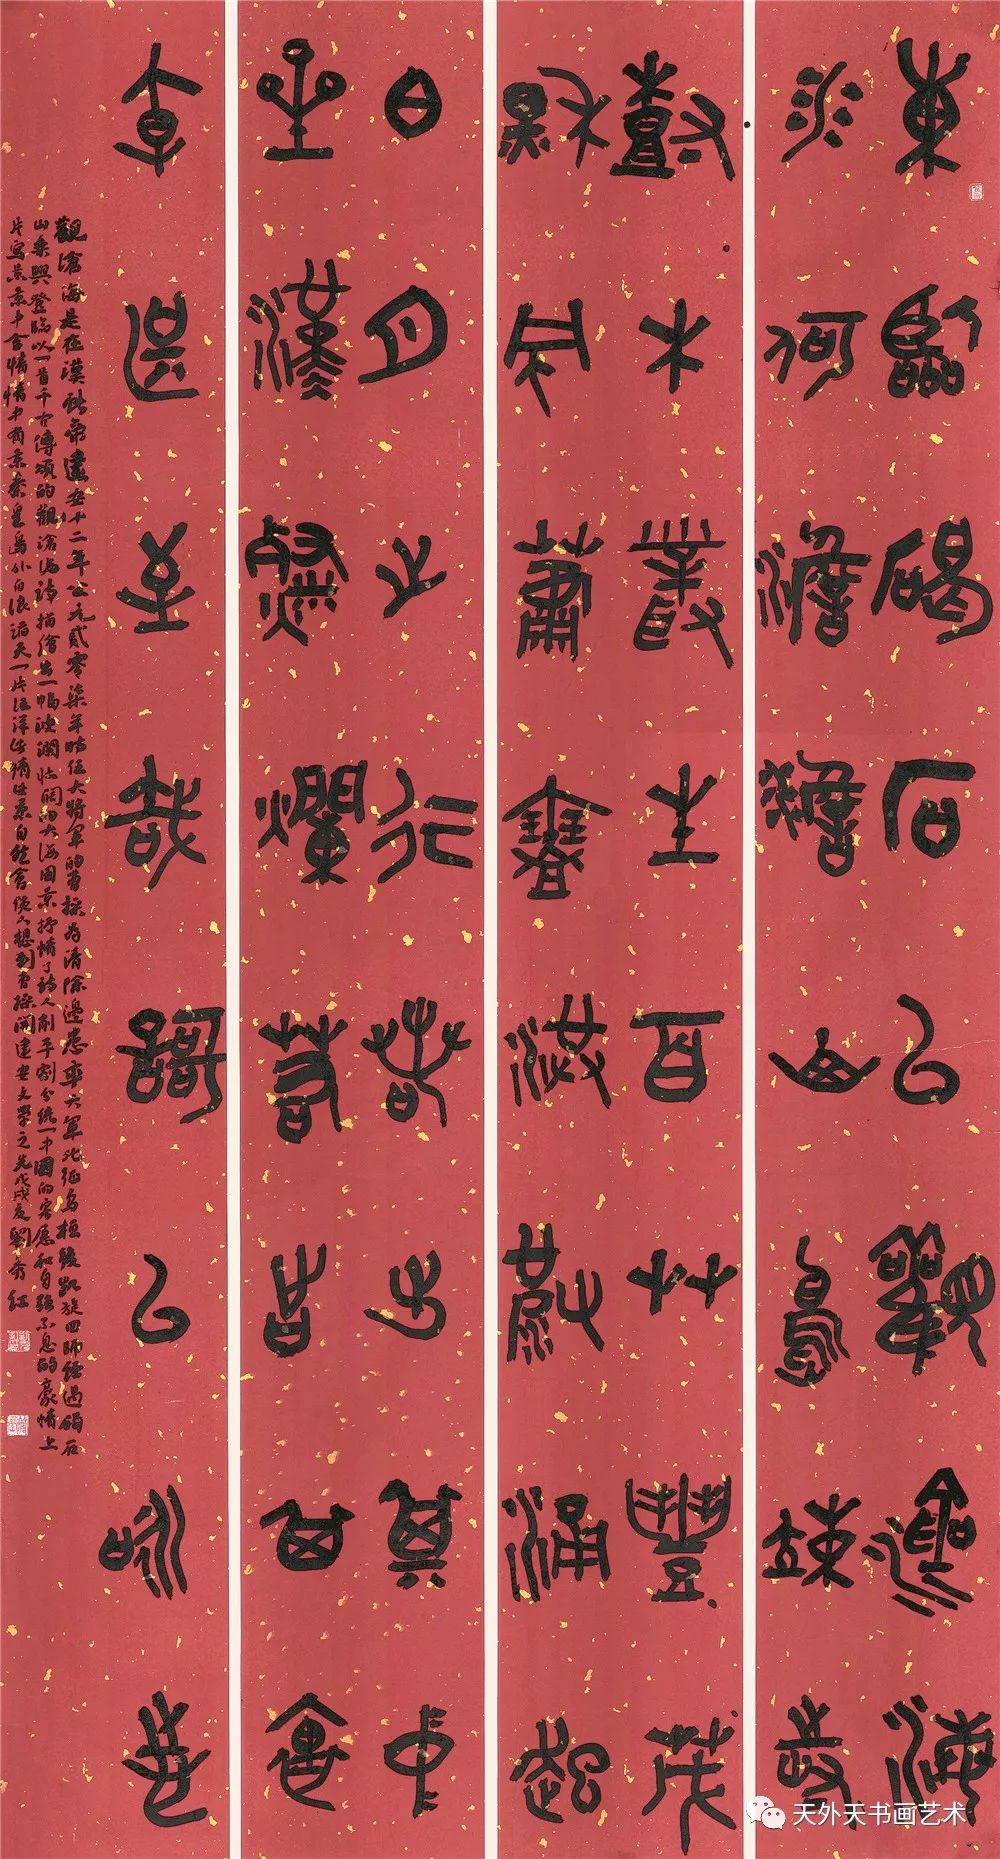 東臨碣石以觀滄海
水何澹澹山島竦峙
樹木叢生百草豐茂
秋風蕭瑟洪波涌起
日月之行若出其中
星漢燦爛若出其里
幸甚至哉歌以詠志
觀滄海是在漢獻帝建安十二年公元貳零柒年時任大將軍的曹操為清除邊患率大軍北征烏桓後凱旋回師經過碣石
山乘興登臨以一首千古傳頌的觀滄海詩描繪出一幅波瀾壯闊的大海圖景抒情了詩人削平割分統一中國的宏愿和自強不息的豪情上
片寫景景中含情情中有景秦皇島外白浪滔天一片汪洋此情此景自然會使人想到曹操開建安文學之先戊戌夏劉秀紅
天外天书画艺术